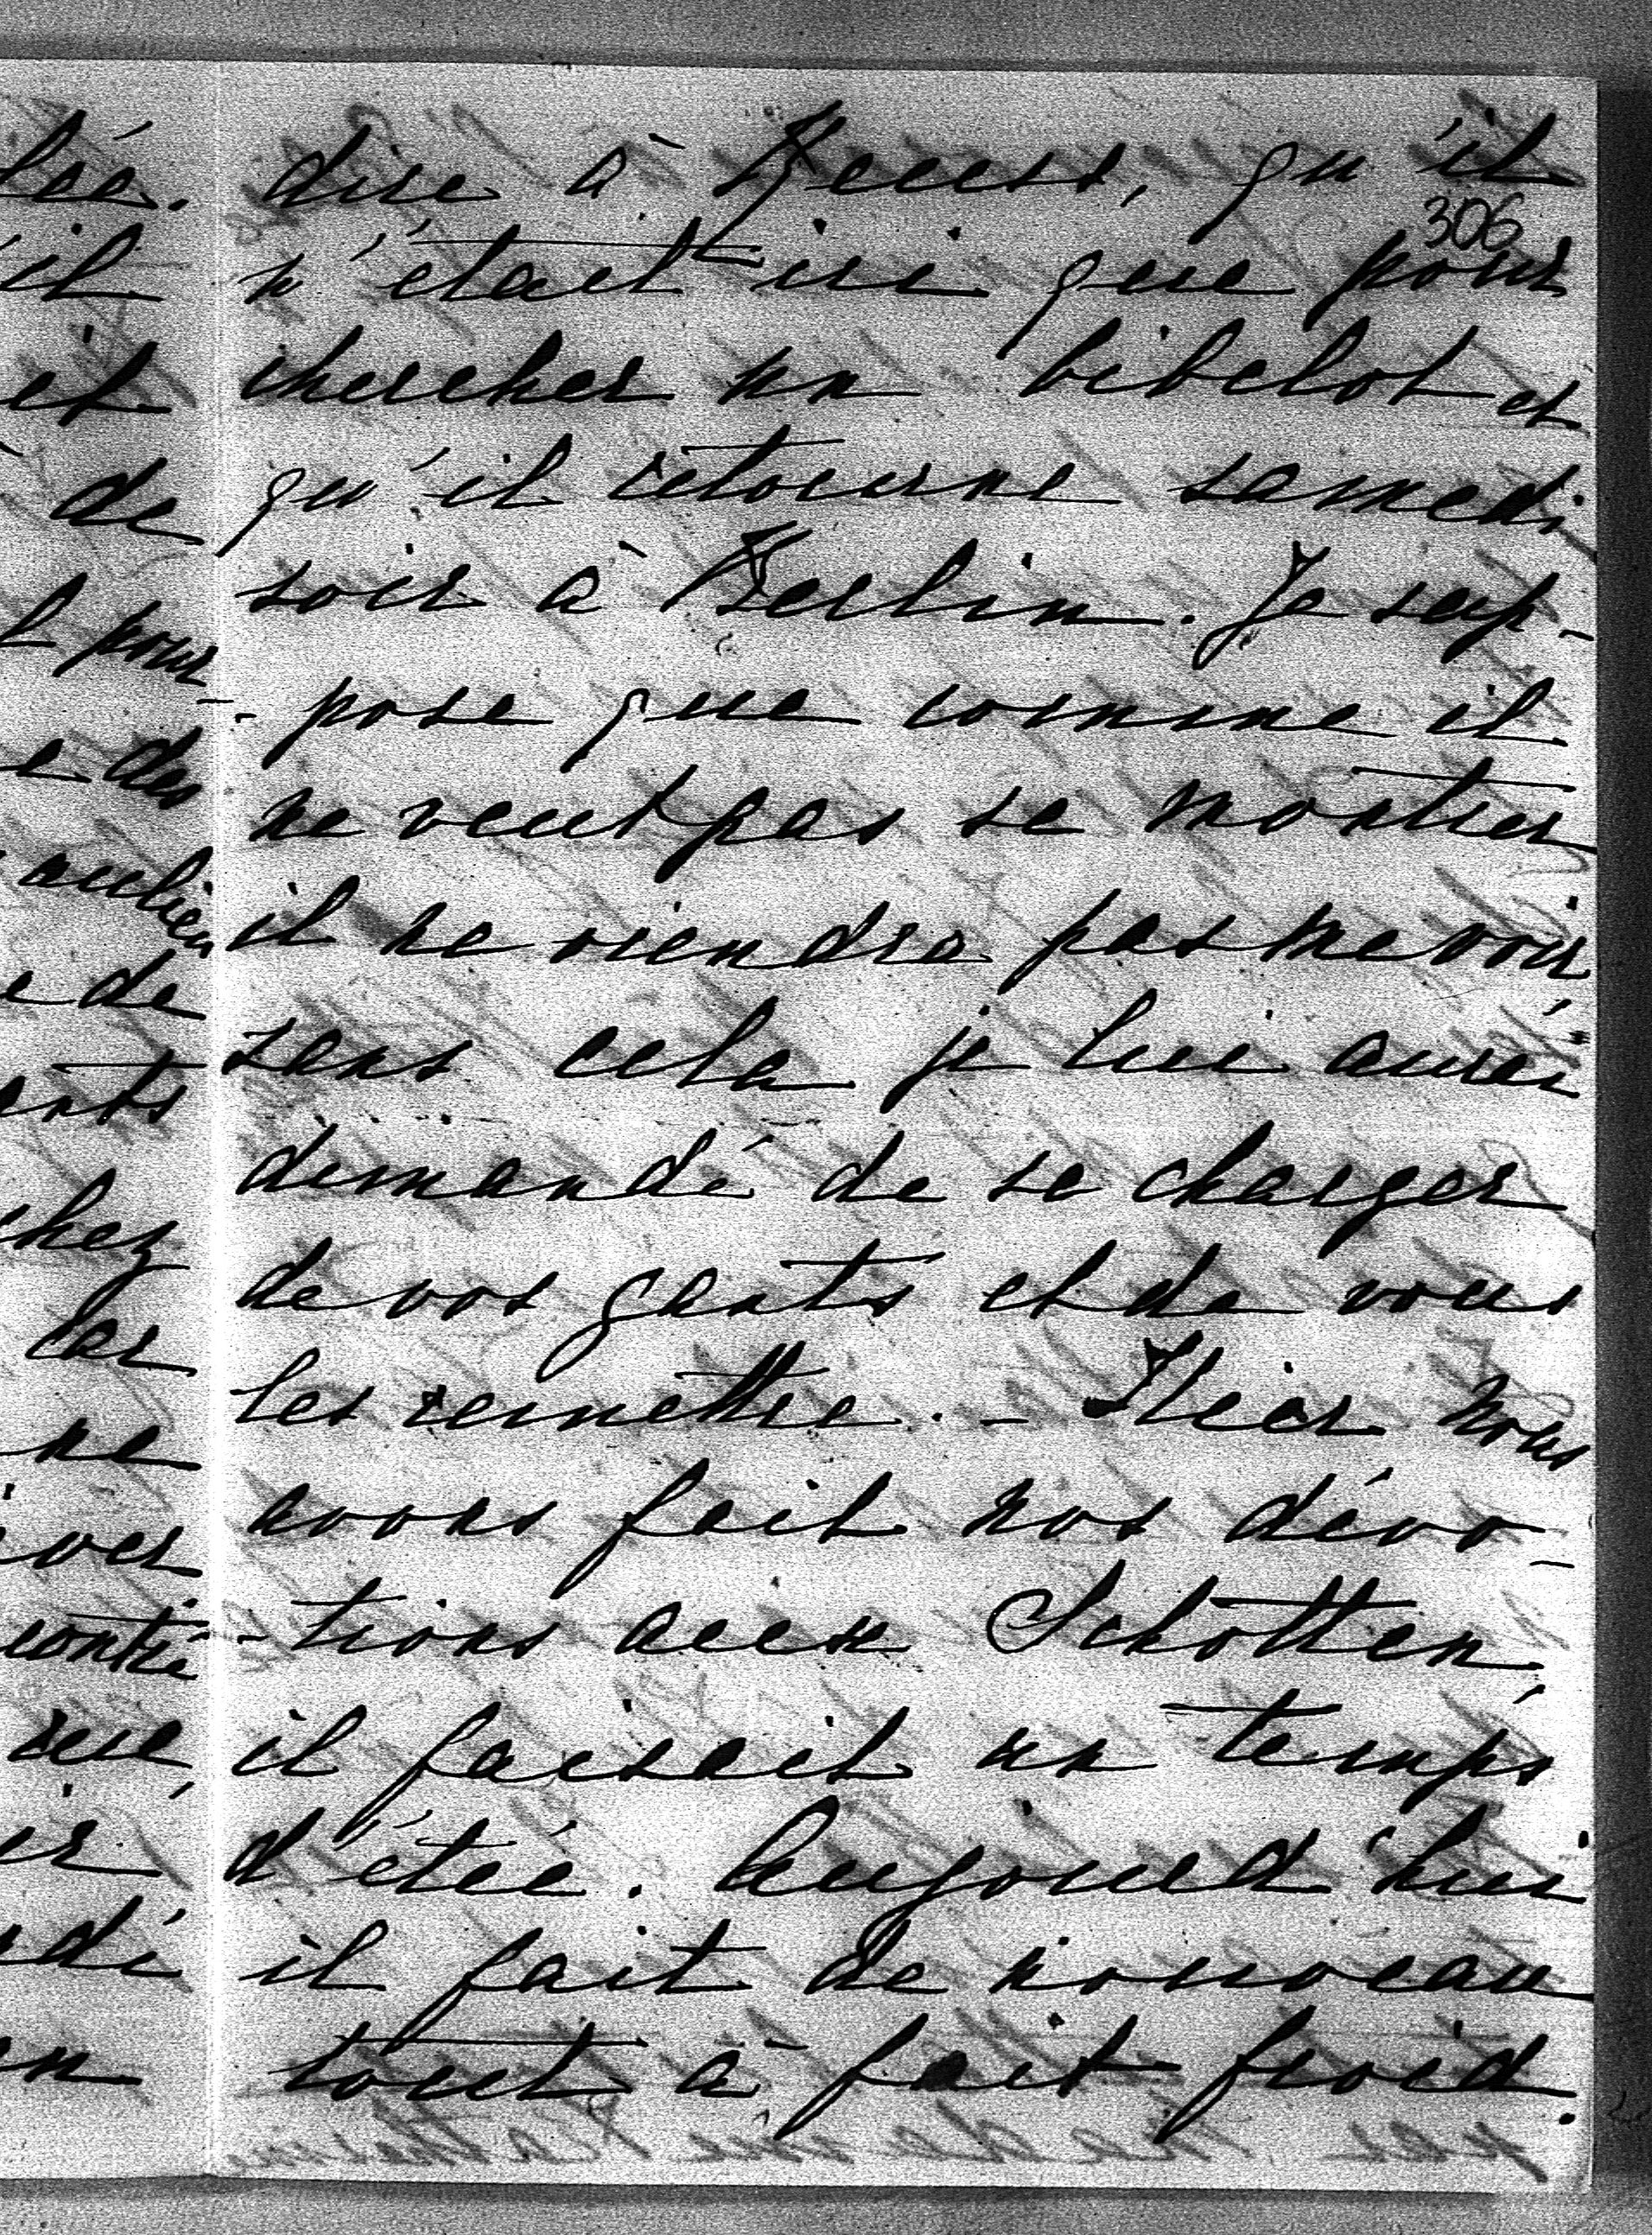 lée.
il
et
de
pour-
e des
aulieu
e de
ents
chez
car
ne
iver
contré
rue,
er
di
en
dire à Reuss, qu'il
306
n'était ici que pour
chercher un bibelot et
qu'il retourne samedi
soir à Berlin. Je sup-
-pose que comme il
ne veut pas se montrer
il ne viendra pas me voir
sans cela je lui aurai
demandé de se charger
de vos gants et de vous
les remettre. - Hier nous
avons fait nos dévo-
-tions aux Schotten,
il faisait un temps
d'étée. Aujourd'hui
il fait de nouveau
tout à fait froid.